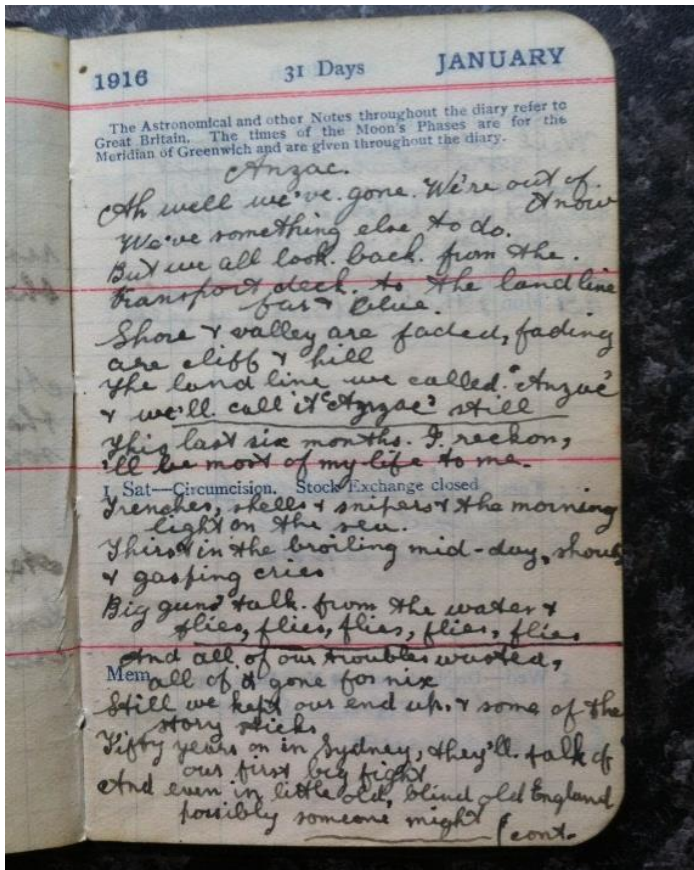 1916 31 Days JANUARY
The Astronomical and other Notes throughout the diary refer to
Great Britain. The times of the Moon's Phases are for the
Meridian of Greenwich and are given throughout the diary.
Anzac.
Ah well we've gone. We're out of.
it now
We've something else to do.
But we all look. back. from the.
transport deck. to the land line
far & blue.
Shore & valley are faded, fading
are cliff & hill
The land line we called. "Anzac"
& we'll call it "Anzac" still
This last six months. I. reckon,
'll be most of my life to me.
1 Sat—Circumcision. Stock Exchange closed
Trenches, shells & snipers & the morning
light on the sea.
Thirst in the broiling mid-day, shouts
& gasping cries
Big guns' talk. from the water &
flies, flies, flies, flies, flies
And all of our troubles wasted,
Mem
all of it gone for nix
Still we kept our end up. & some of the
story sticks
Fifty years on in Sydney, they'll. talk of
our first big fight
And even in little old, blind old England
possibly someone might (cont.